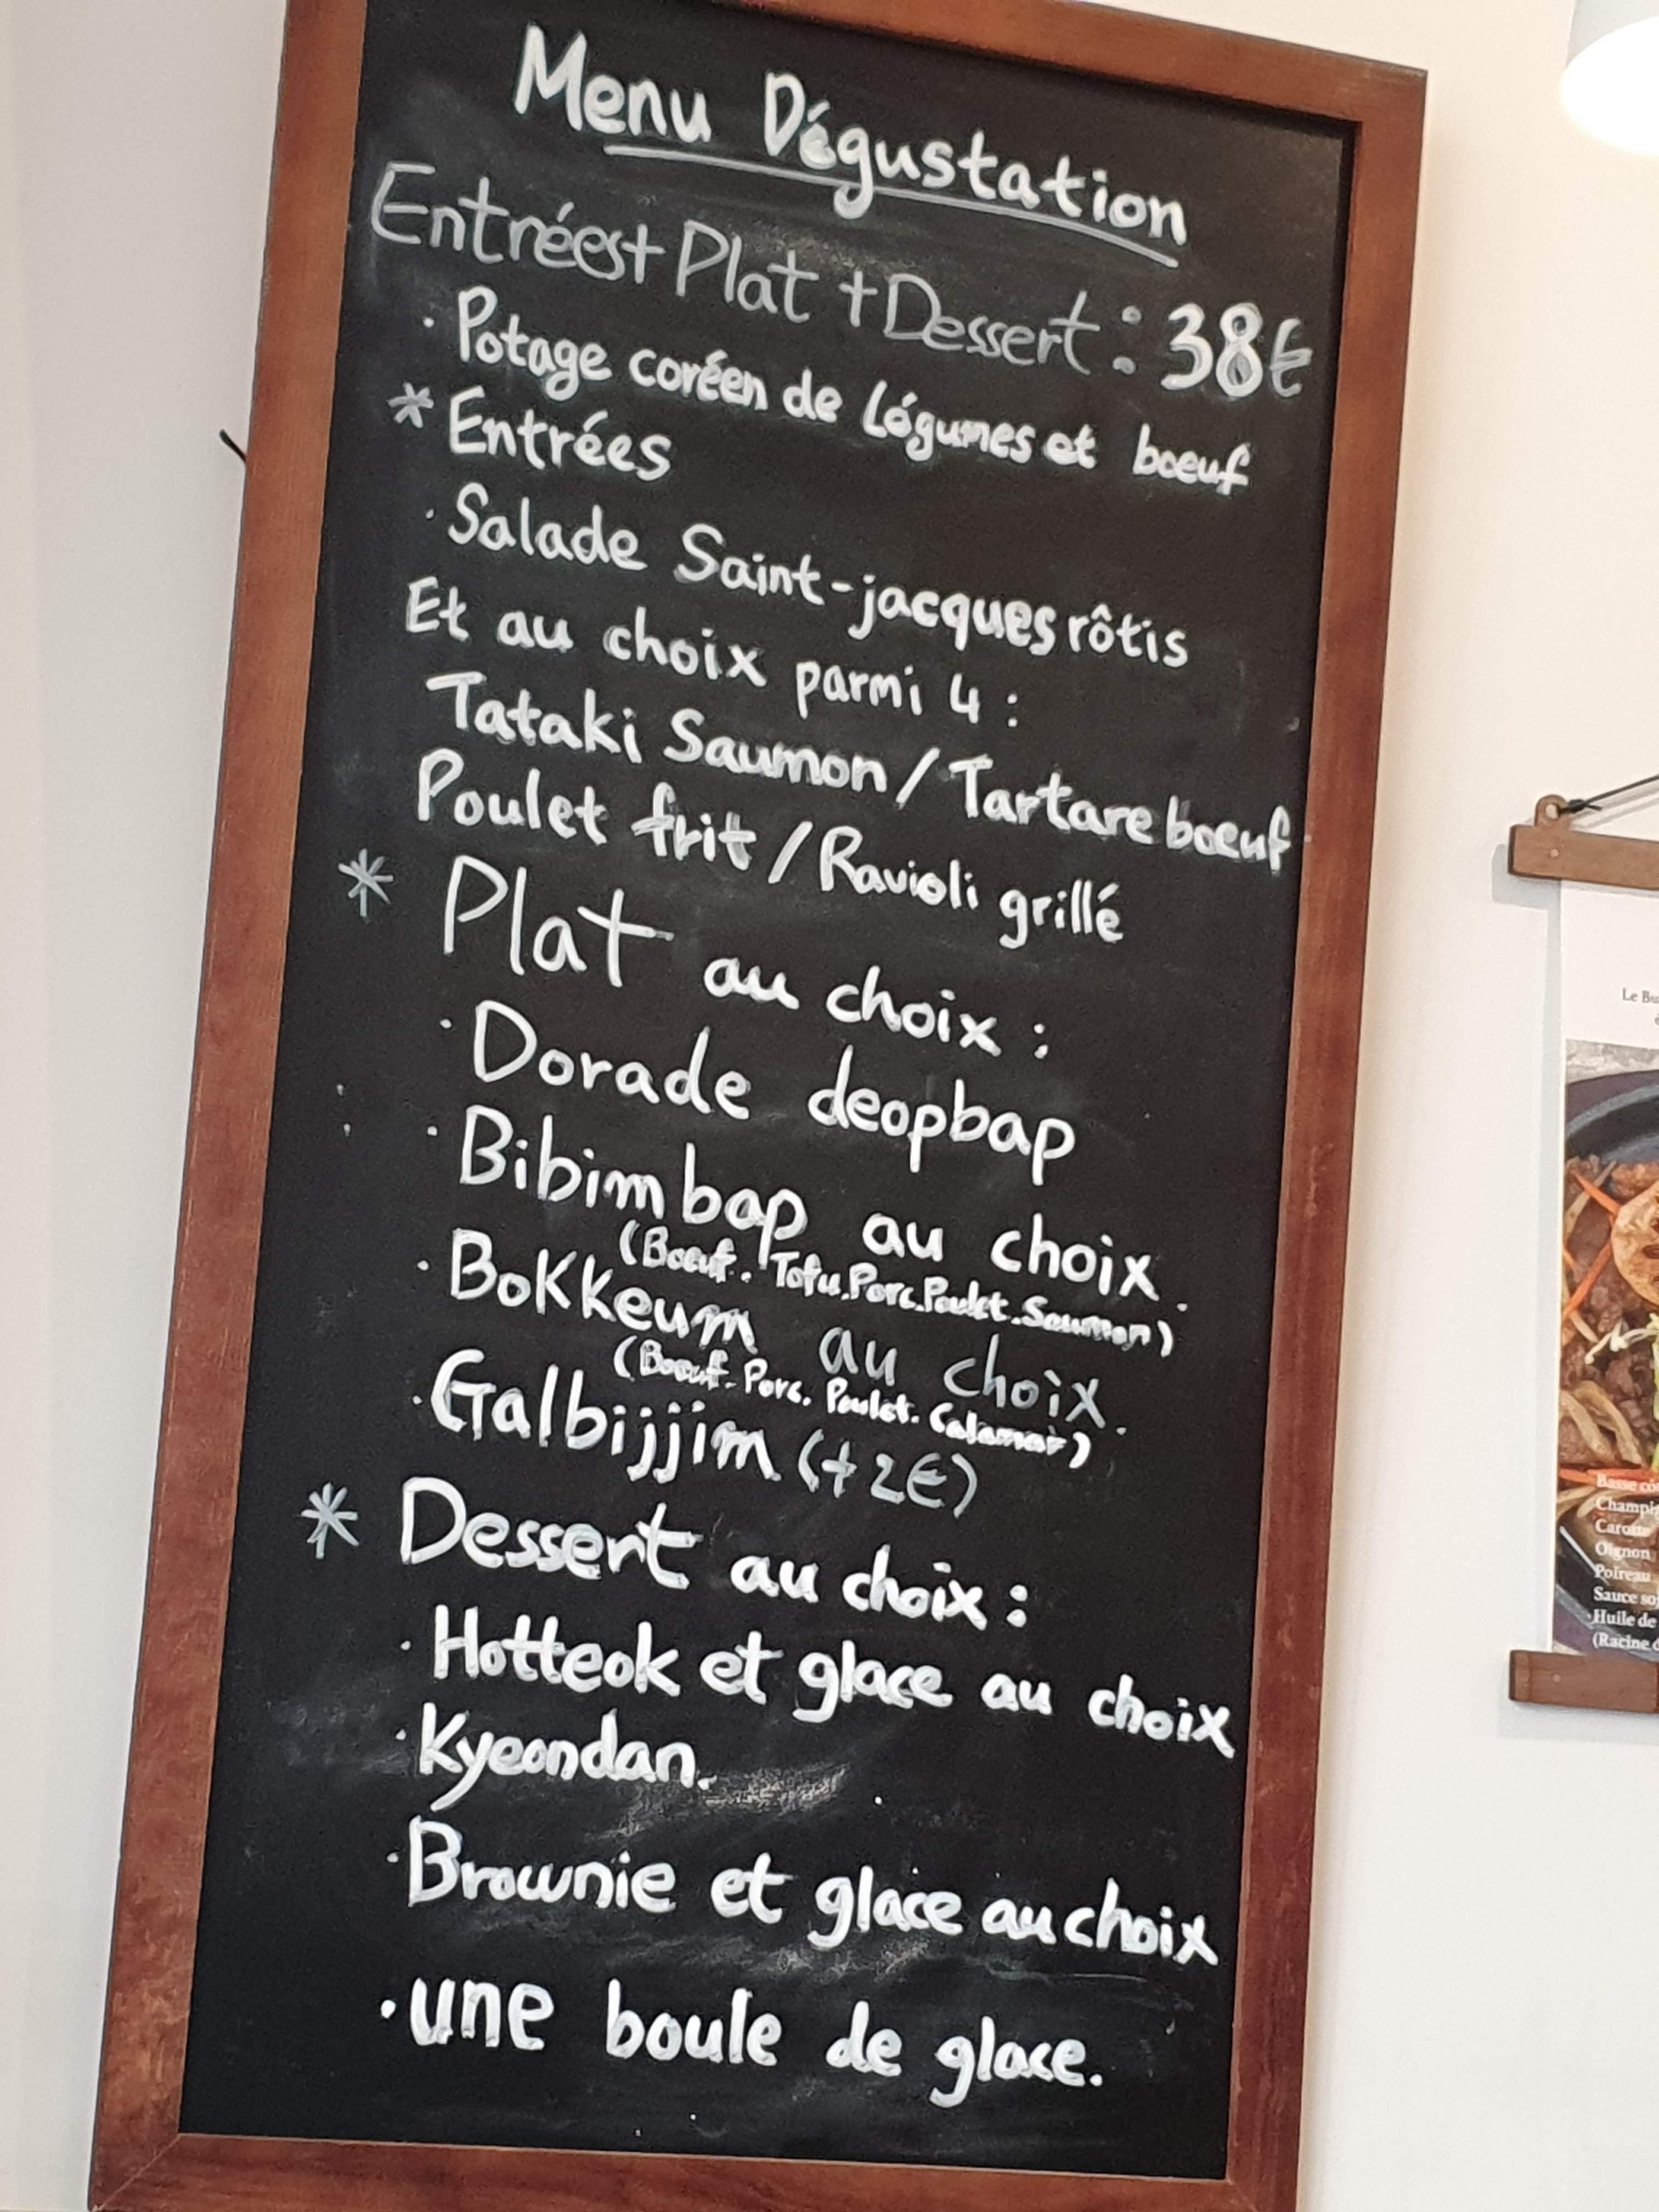 Menu Dégustation
Entrées+Plat+Dessert : 38€
· Potage coréen de Légumes et boeuf
* Entrées
· Salade Saint-jacques rôtis
Et au choix parmi 4 :
Tataki Saumon / Tartare boeuf
Poulet frit / Ravioli grillé
* Plat au choix :
· Dorade deopbap
· Bibimbap au choix.
(Boeuf. Tofu. Porc. Poulet. Saumon)
· Bokkeum au choix.
(Boeuf. Porc. Poulet. Calamar)
· Galbijjim (+2€)
* Dessert au choix :
· Hotteok et glace au choix
· Kyeondan.
· Brownie et glace au choix
· une boule de glace.
Le
Basse
Carotte
Oignon
Poireau
Sauce
Huile de
(Racine